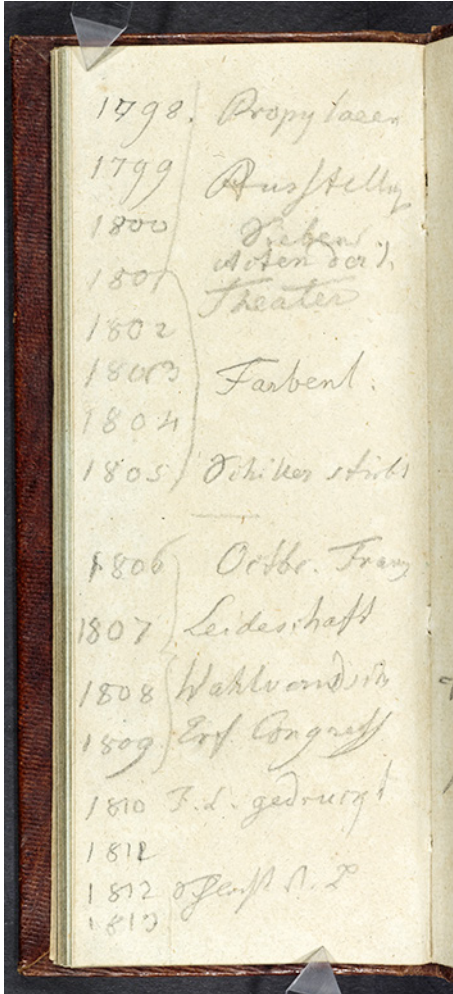 1798. Propylaeen
1799 Ausstellg
1800 Sieben
Acten der
1801 Theater
1802
1803 Farbenl.
1804
1805 Schiller stirbt
1806 Octbr. Franz
1807 Leideschaft
1808 Wahlverwdsch
1809 Erf. Congreß
1810 F. L. gedruckt
1811
1812
1813